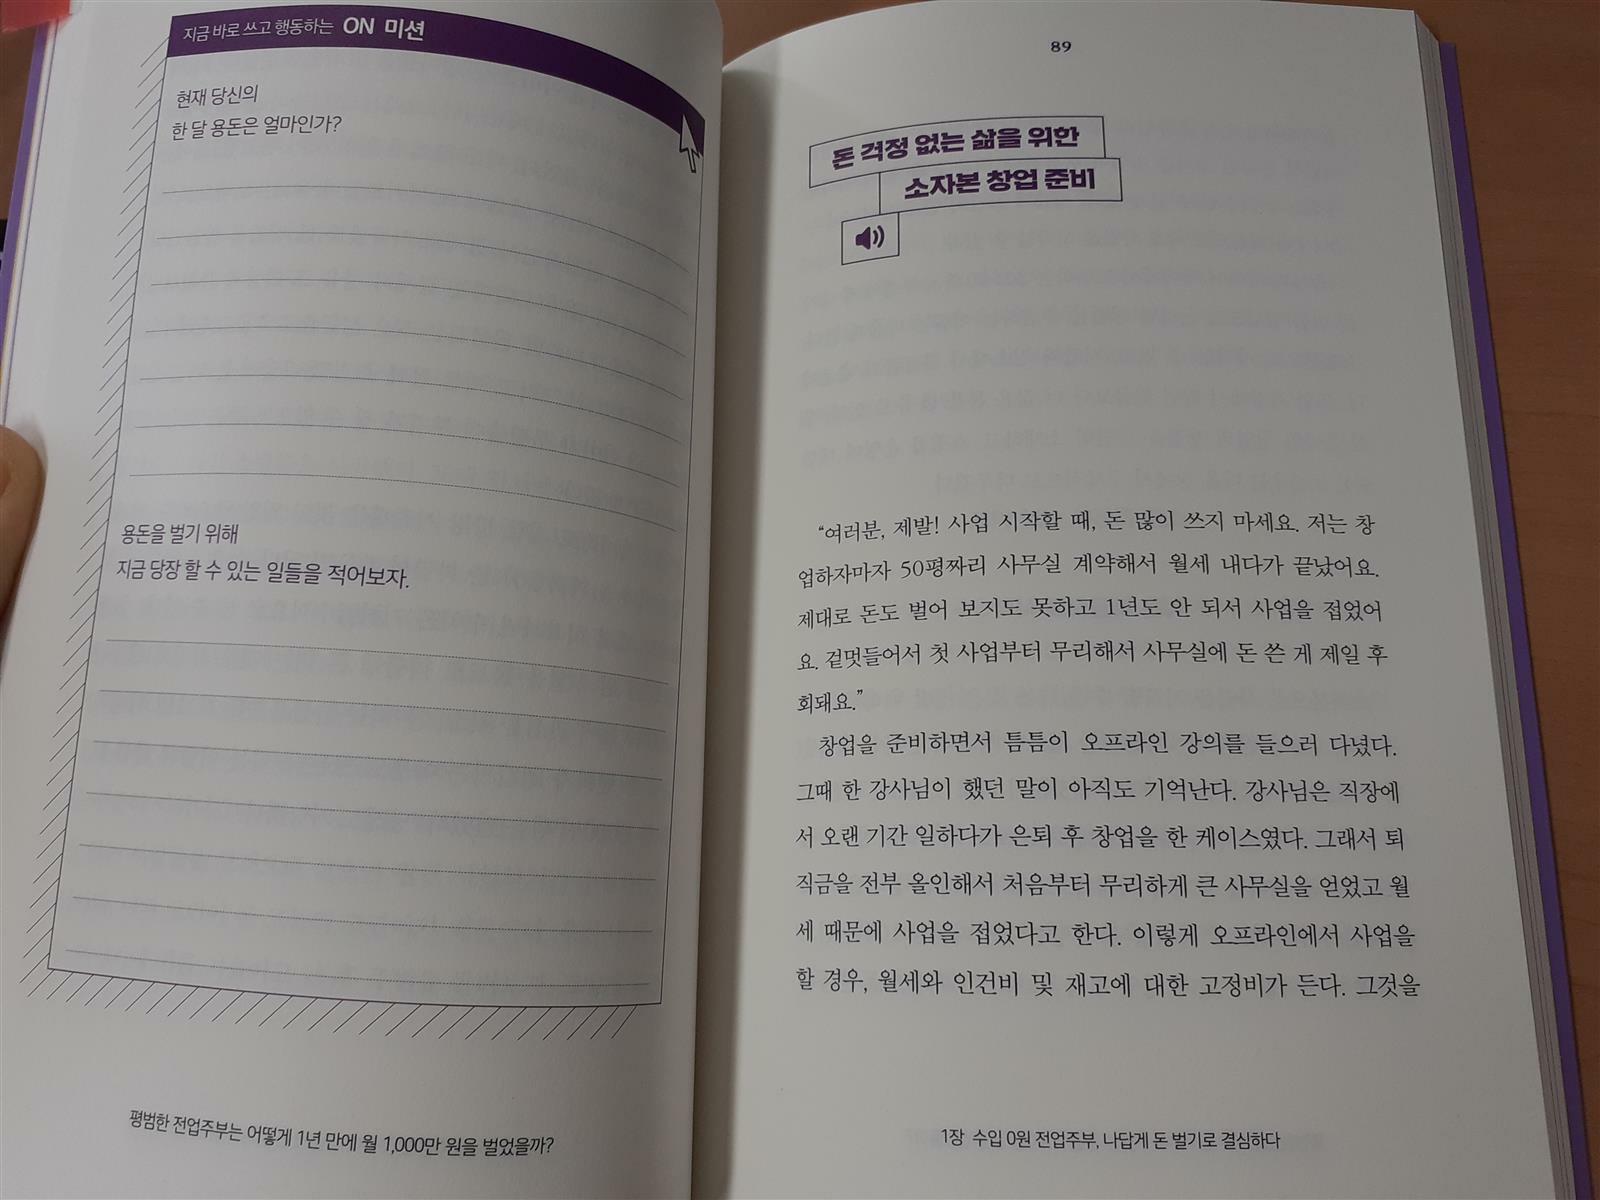 지금 바로 쓰고 행동하는 ON 미션
현재 당신의
한 달 용돈은 얼마인가?
용돈을 벌기 위해
지금 당장 할 수 있는 일들을 적어보자.
평범한 전업주부는 어떻게 1년 만에 월 1,000만 원을 벌었을까?
89
돈 걱정 없는 삶을 위한
소자본 창업 준비
“여러분, 제발! 사업 시작할 때, 돈 많이 쓰지 마세요. 저는 창
업하자마자 50평짜리 사무실 계약해서 월세 내다가 끝났어요.
제대로 돈도 벌어 보지도 못하고 1년도 안 되서 사업을 접었어
요. 겉멋들어서 첫 사업부터 무리해서 사무실에 돈 쓴 게 제일 후
회돼요.”
창업을 준비하면서 틈틈이 오프라인 강의를 들으러 다녔다.
그때 한 강사님이 했던 말이 아직도 기억난다. 강사님은 직장에
서 오랜 기간 일하다가 은퇴 후 창업을 한 케이스였다. 그래서 퇴
직금을 전부 올인해서 처음부터 무리하게 큰 사무실을 얻었고 월
세 때문에 사업을 접었다고 한다. 이렇게 오프라인에서 사업을
할 경우, 월세와 인건비 및 재고에 대한 고정비가 든다. 그것을
1장 수입 0원 전업주부, 나답게 돈 벌기로 결심하다